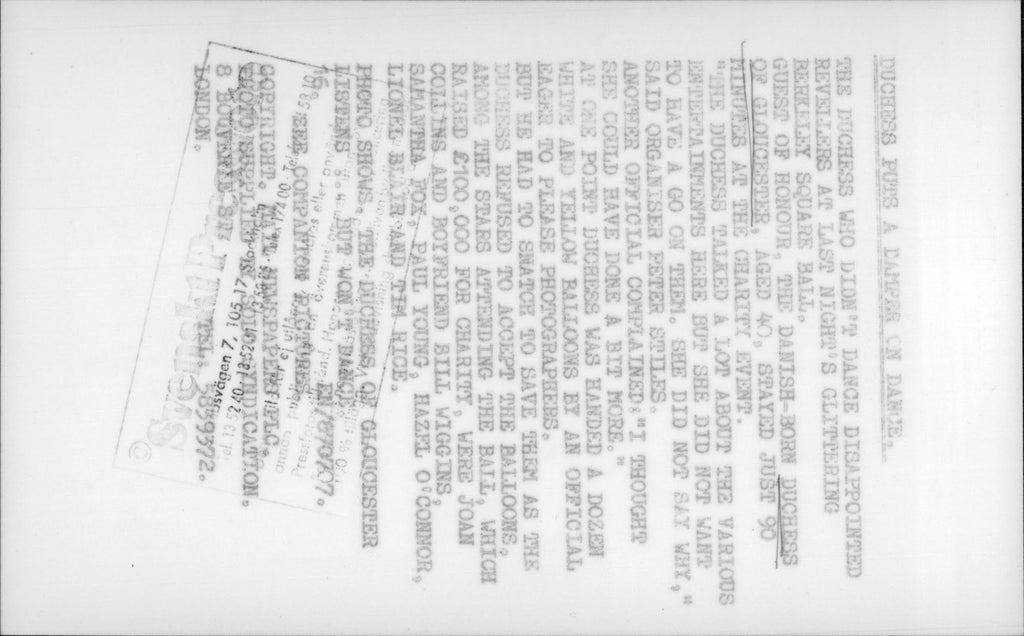 DUCHESS PUTS A DAMPER ON DANCE.
THE DUCHESS WHO DIDN'T DANCE DISAPPOINTED
REVELLERS AT LAST NIGHT'S GLITTERING
BERKELEY SQUARE BALL.
GUEST OF HONOUR, THE DANISH-BORN DUCHESS
OF GLOUCESTER, AGED 40, STAYED JUST 90
MINUTES AT THE CHARITY EVENT.
"THE DUCHESS TALKED A LOT ABOUT THE VARIOUS
ENTERTAINMENTS HERE BUT SHE DID NOT WANT
TO HAVE A GO ON THEM. SHE DID NOT SAY WHY,"
SAID ORGANISER PETER STILES.
ANOTHER OFFICIAL COMPLAINED: "I THOUGHT
SHE COULD HAVE DONE A BIT MORE."
AT ONE POINT DUCHESS WAS HANDED A DOZEN
WHITE AND YELLOW BALLOONS BY AN OFFICIAL
EAGER TO PLEASE PHOTOGRAPHERS.
BUT HE HAD TO SNATCH TO SAVE THEM AS THE
DUCHESS REFUSED TO ACCEPT THE BALLOONS.
AMONG THE STARS ATTENDING THE BALL, WHICH
RAISED £100,000 FOR CHARITY, WERE JOAN
COLLINS AND BOYFRIEND BILL WIGGINS,
SAMANTHA FOX, PAUL YOUNG, HAZEL O'CONNOR,
LIONEL BLAIR AND TIM RICE.
PHOTO SHOWS. THE DUCHESS OF GLOUCESTER
LISTENS . . . BUT WON'T DANCE.
SEE COMPANION PICTURE
COPYRIGHT. NEWSPAPERS PLC.
PHOTO SUPPLIED BY SOLO SYNDICATION.
8 BOUVERIE ST.
LONDON.
© Svenskt